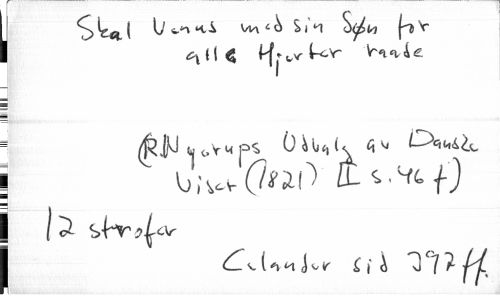 Skal Venus med sin Søn for
alle Hjerter raade
(R. Nyerups Udvalg av Danske
Viser (1821) II s. 46 f)
12 strofer
Celander sid 392 ff.